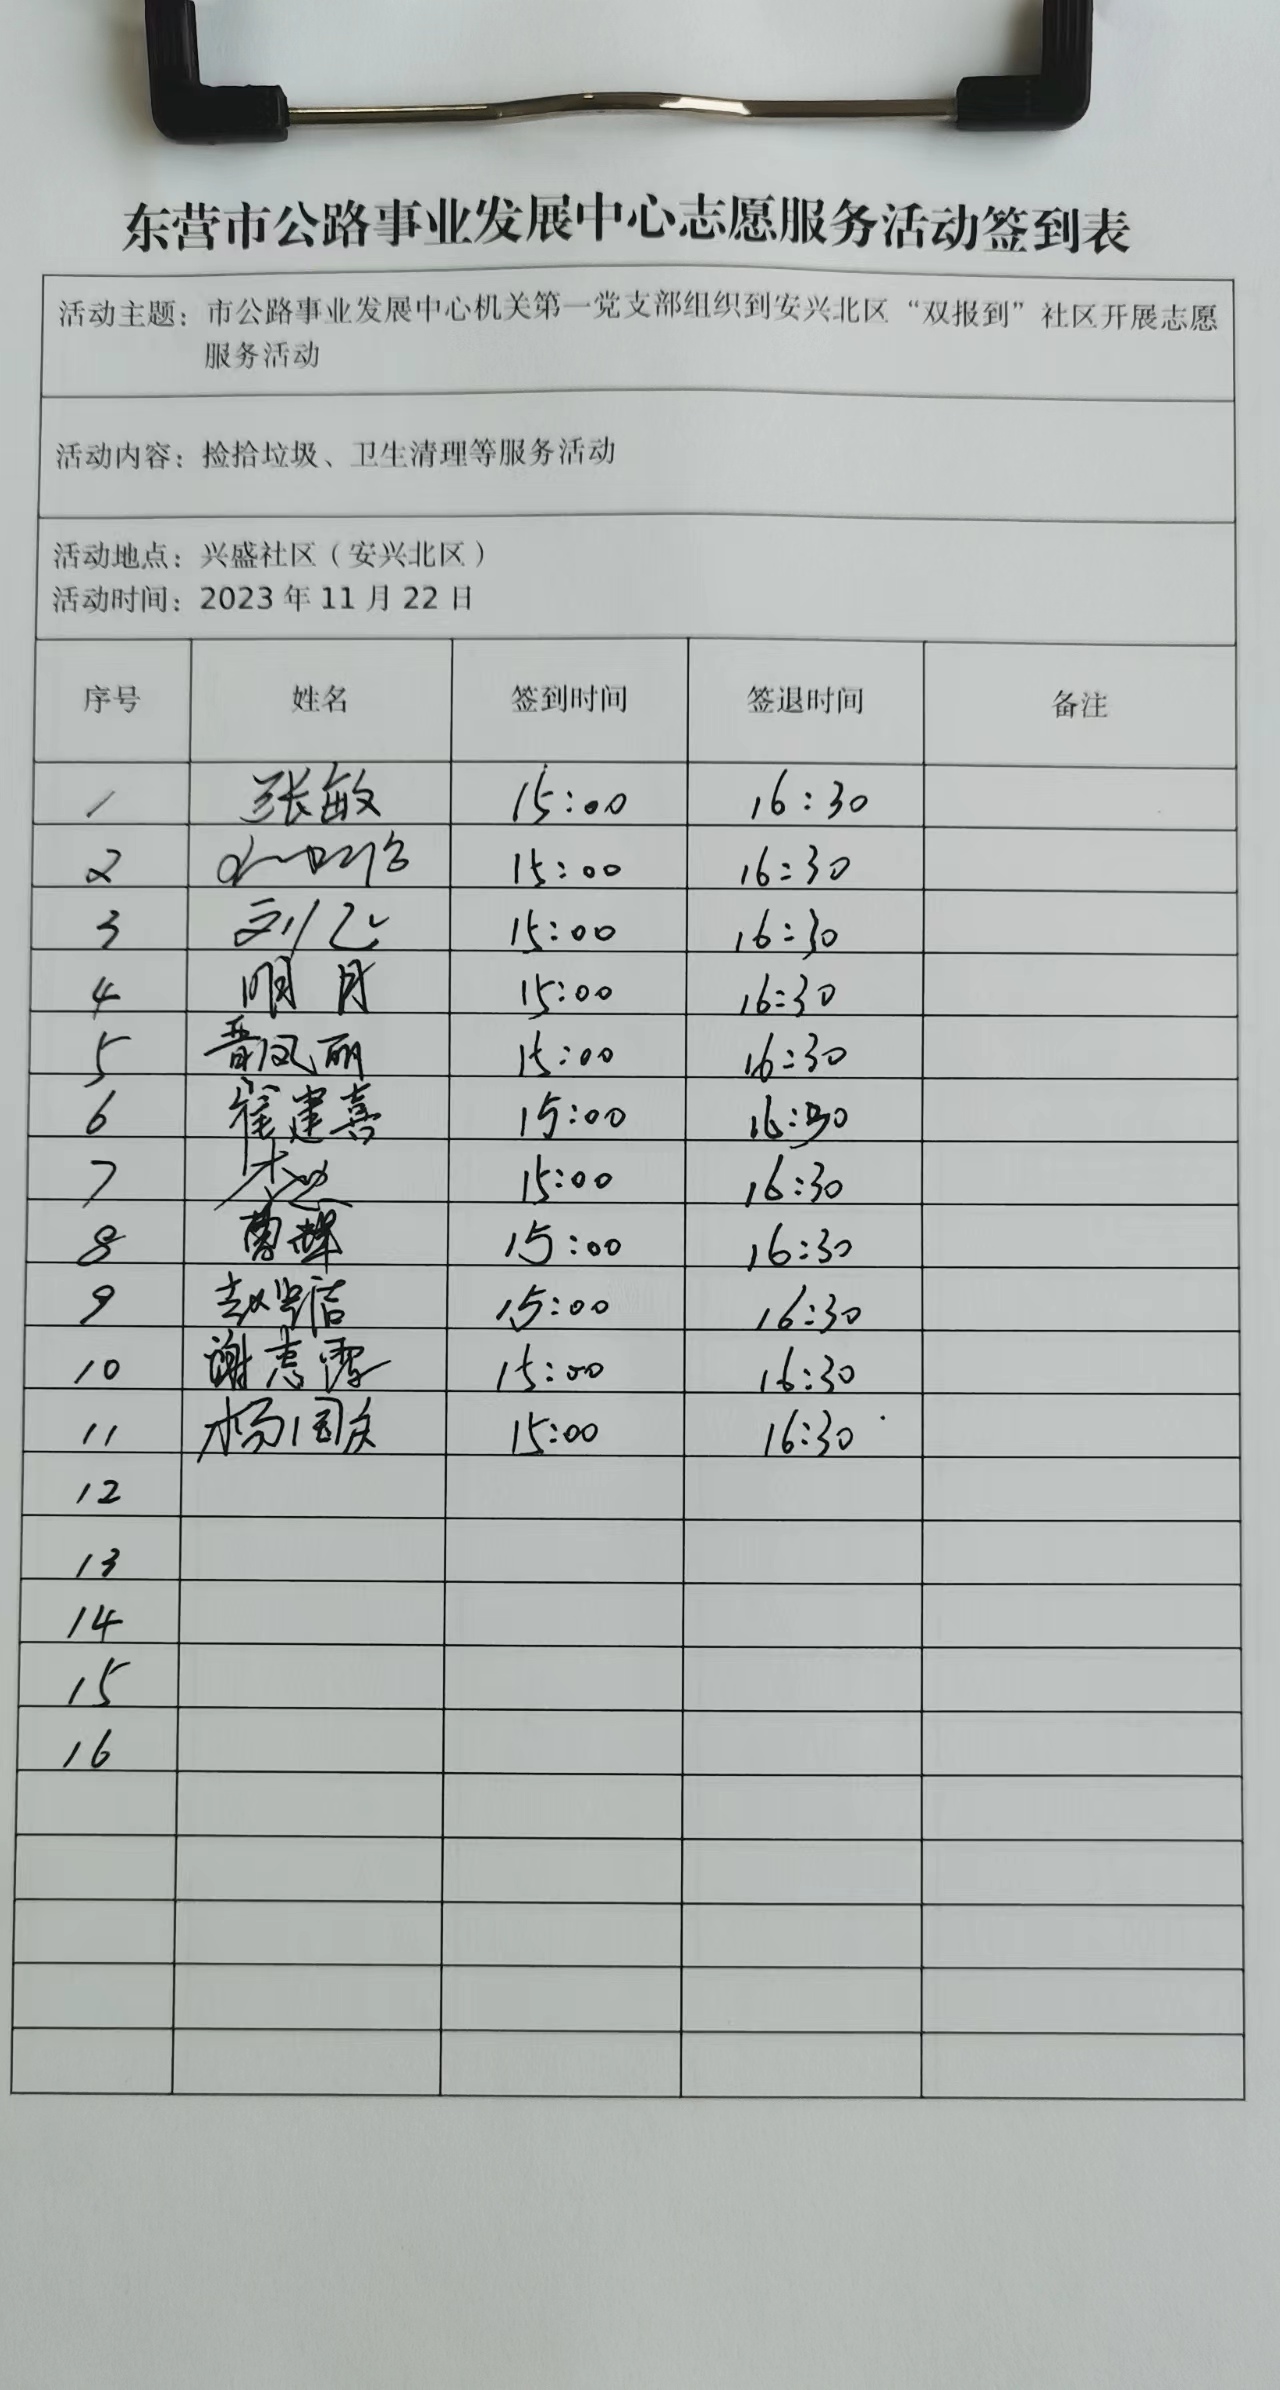 东营市公路事业发展中心志愿服务活动签到表
活动主题：市公路事业发展中心机关第一党支部组织到安兴北区“双报到”社区开展志愿
服务活动
活动内容：捡拾垃圾、卫生清理等服务活动
活动地点：兴盛社区（安兴北区）
活动时间：2023年11月22日
序号 姓名 签到时间 签退时间 备注
1 张敏 15:00 16:30
2 15:00 16:30
3 刘飞 15:00 16:30
4 明月 15:00 16:30
5 晋凤丽 15:00 16:30
6 崔建喜 15:00 16:30
7 15:00 16:30
8 曹辉 15:00 16:30
9 赵 15:00 16:30
10 谢志霞 15:00 16:30
11 杨国庆 15:00 16:30
12
13
14
15
16